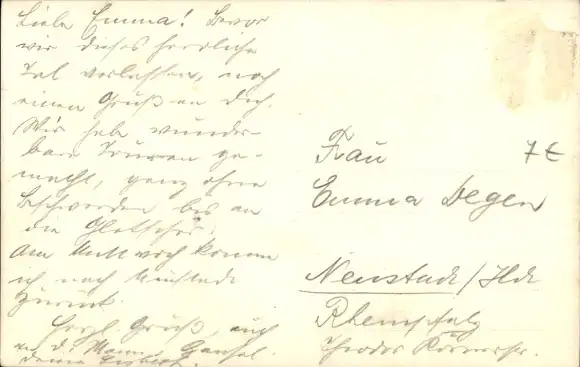 Liebe Emma! Bevor
wir dieses herrliche
Tal verlassen, noch
einen Gruß an Dich.
Wir hab wunder-
bare Touren ge-
macht, ganz ohne
Beschwerden bis an
die Gletscher.
Am Mittwoch komme
ich nach Neustadt
zurück.
Herzl. Gruß, auch
an d. Mann
deine
Frau 7€
Emma Degen
Neustadt/Hdt
Rheinpfalz
Theodor Körnerstr.